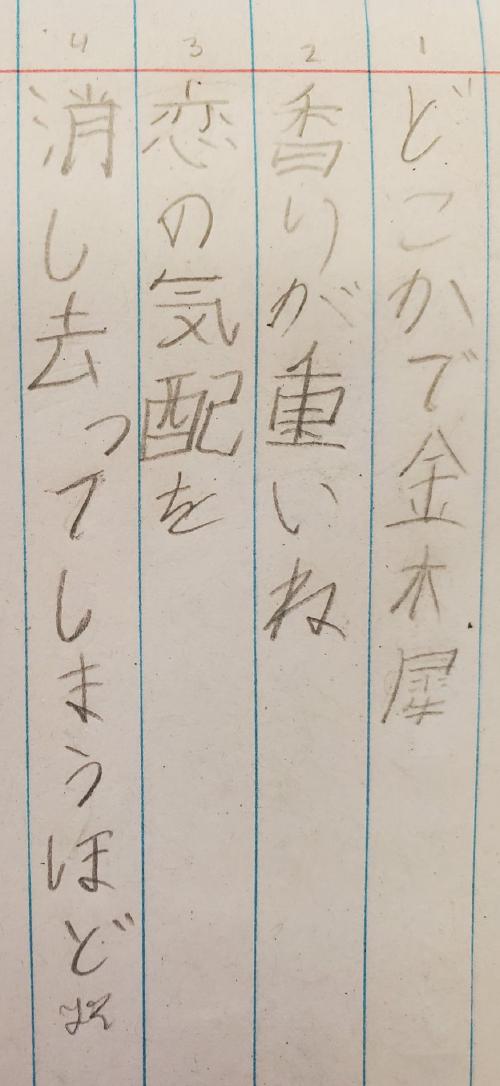 1
どこかで金木犀
2
香りが重いね
3
恋の気配を
4
消し去ってしまうほど